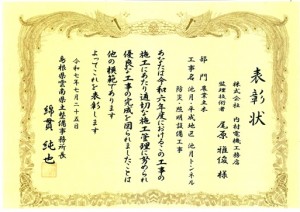 表彰状
株式会社 内村電機工務店
監理技術者 尾原雅俊 様
部門 農業土木
工事名 池月・平成地区 池月トンネル
防災・照明設備工事
あなたは令和六年度におけるこの工事の
施工にあたり適切な施工管理に努められ
優良な工事の完成を図られましたことは
他の模範であります
よってこれを表彰します
令和七年七月二十五日
島根県雲南県土整備事務所長
綿貫 純也